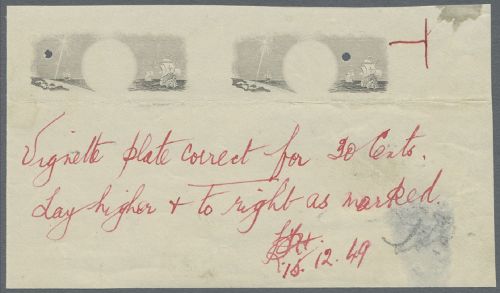 Vignette plate correct for 20 Cents.
Lay higher & to right as marked.
15.12.49